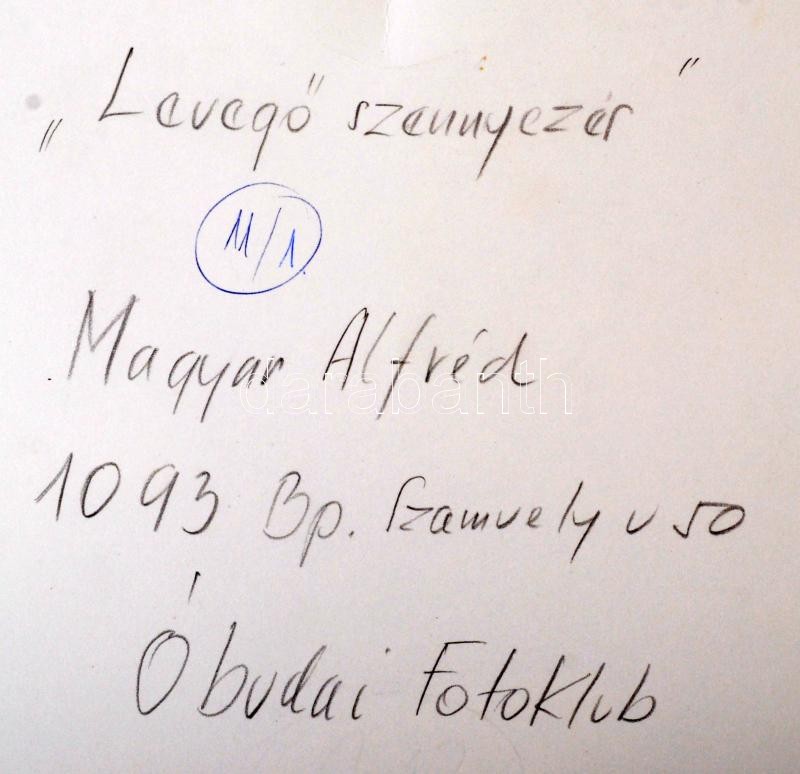 „Levegő szennyezés”
11/1.
Magyar Alfréd
darabanth
1093 Bp. Szamuely u 50
Óbudai Fotoklub